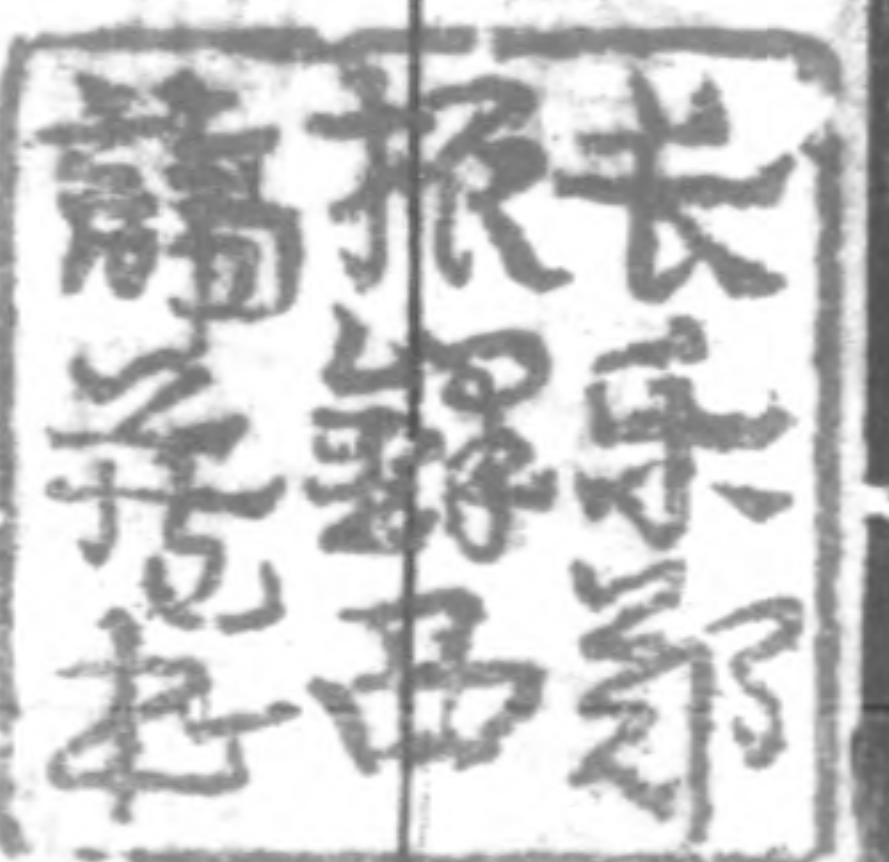 長樂鄭
振鐸西
諦藏書